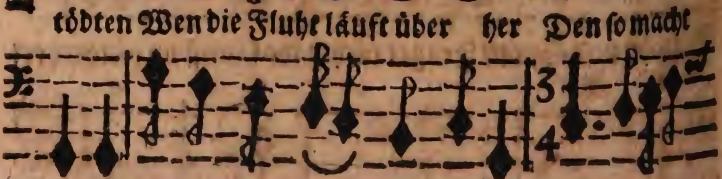 tödten Wen die Fluht läuft über her Den so macht
3
4